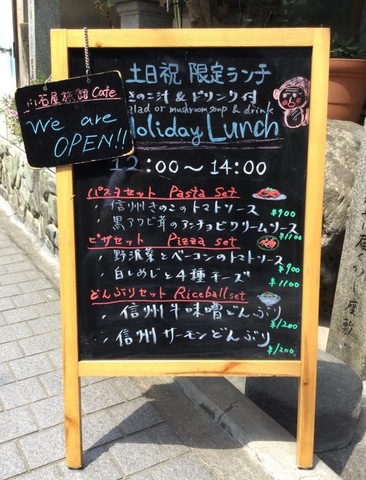 小石屋旅館 Cafe
We are
OPEN!!
土日祝 限定ランチ
きのこ汁 & ドリンク付
salad or mushroom soup & drink
Holiday Lunch
12:00〜14:00
パスタセット Pasta Set
・信州きのこのトマトソース ¥900
・黒アワビ茸のアンチョビクリームソース ¥1100
ピザセット Pizza set
・野沢菜とベーコンのトマトソース ¥900
・白しめじと4種チーズ ¥1100
どんぶりセット Riceball set
・信州牛味噌どんぶり ¥1200
・信州サーモンどんぶり ¥1200